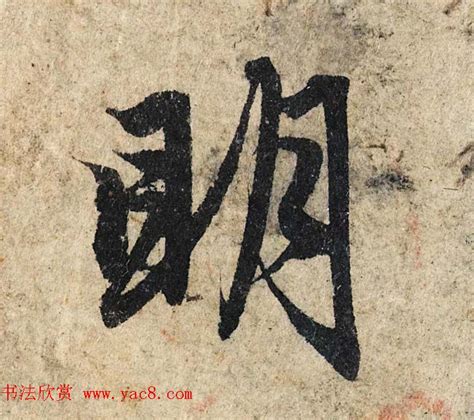 明
书法欣赏 www.yac8.com